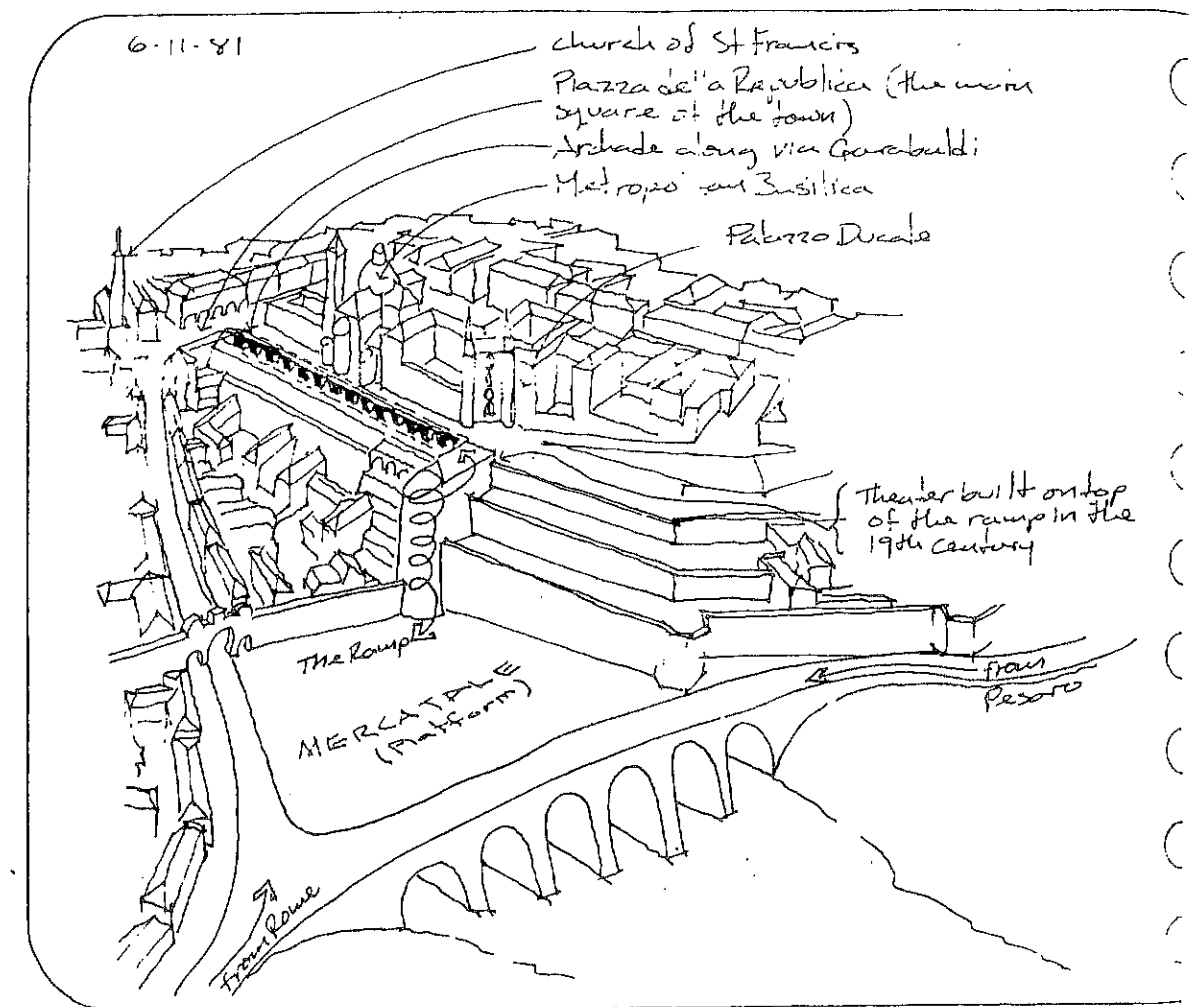 6-11-81
church of St Francis
Piazza della Republica (the main
square of the town)
Archade along via Garabaldi
Metropolitan Basilica
Palazzo Ducale
Theater built on top
of the ramp in the
19th century
The Ramp
MERCATALE
(Platform)
from
Pesaro
from Rome